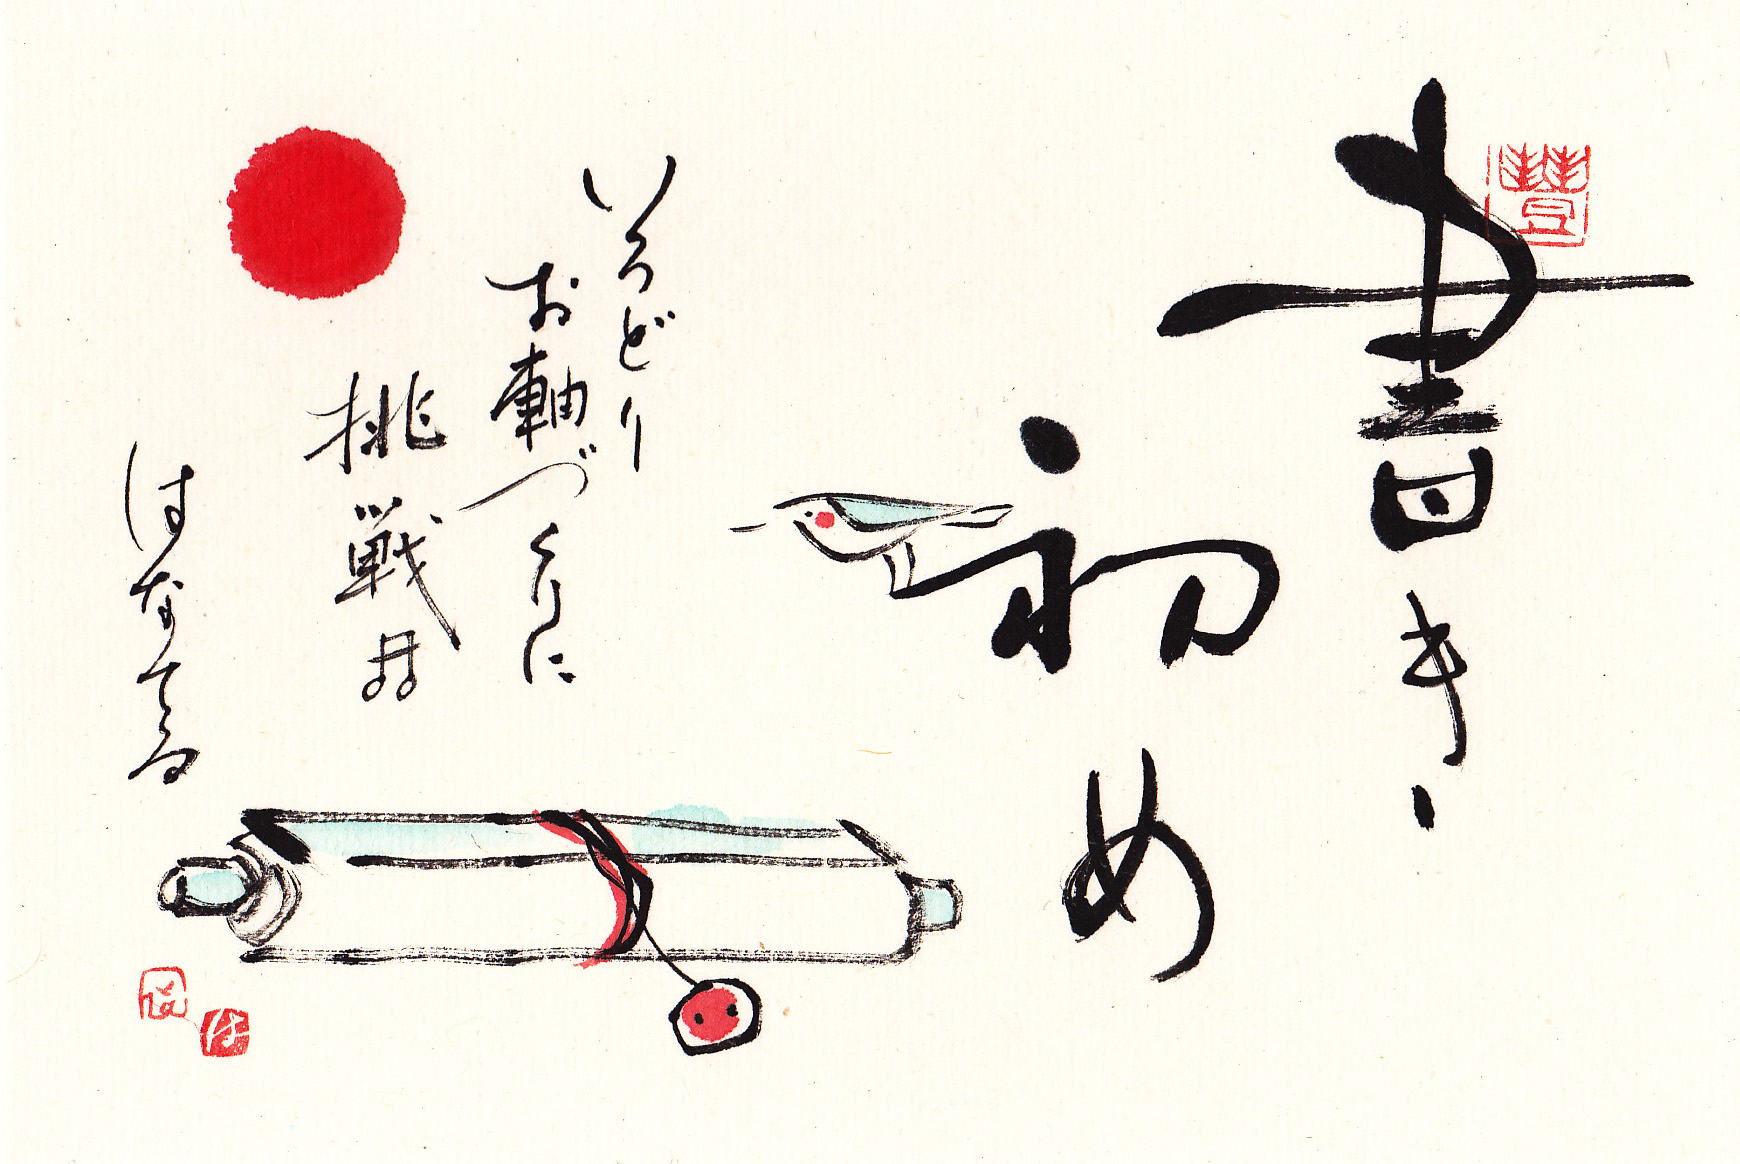 書き
初め
いろどり
お軸づくりに
挑戦♫
はなてる
豊